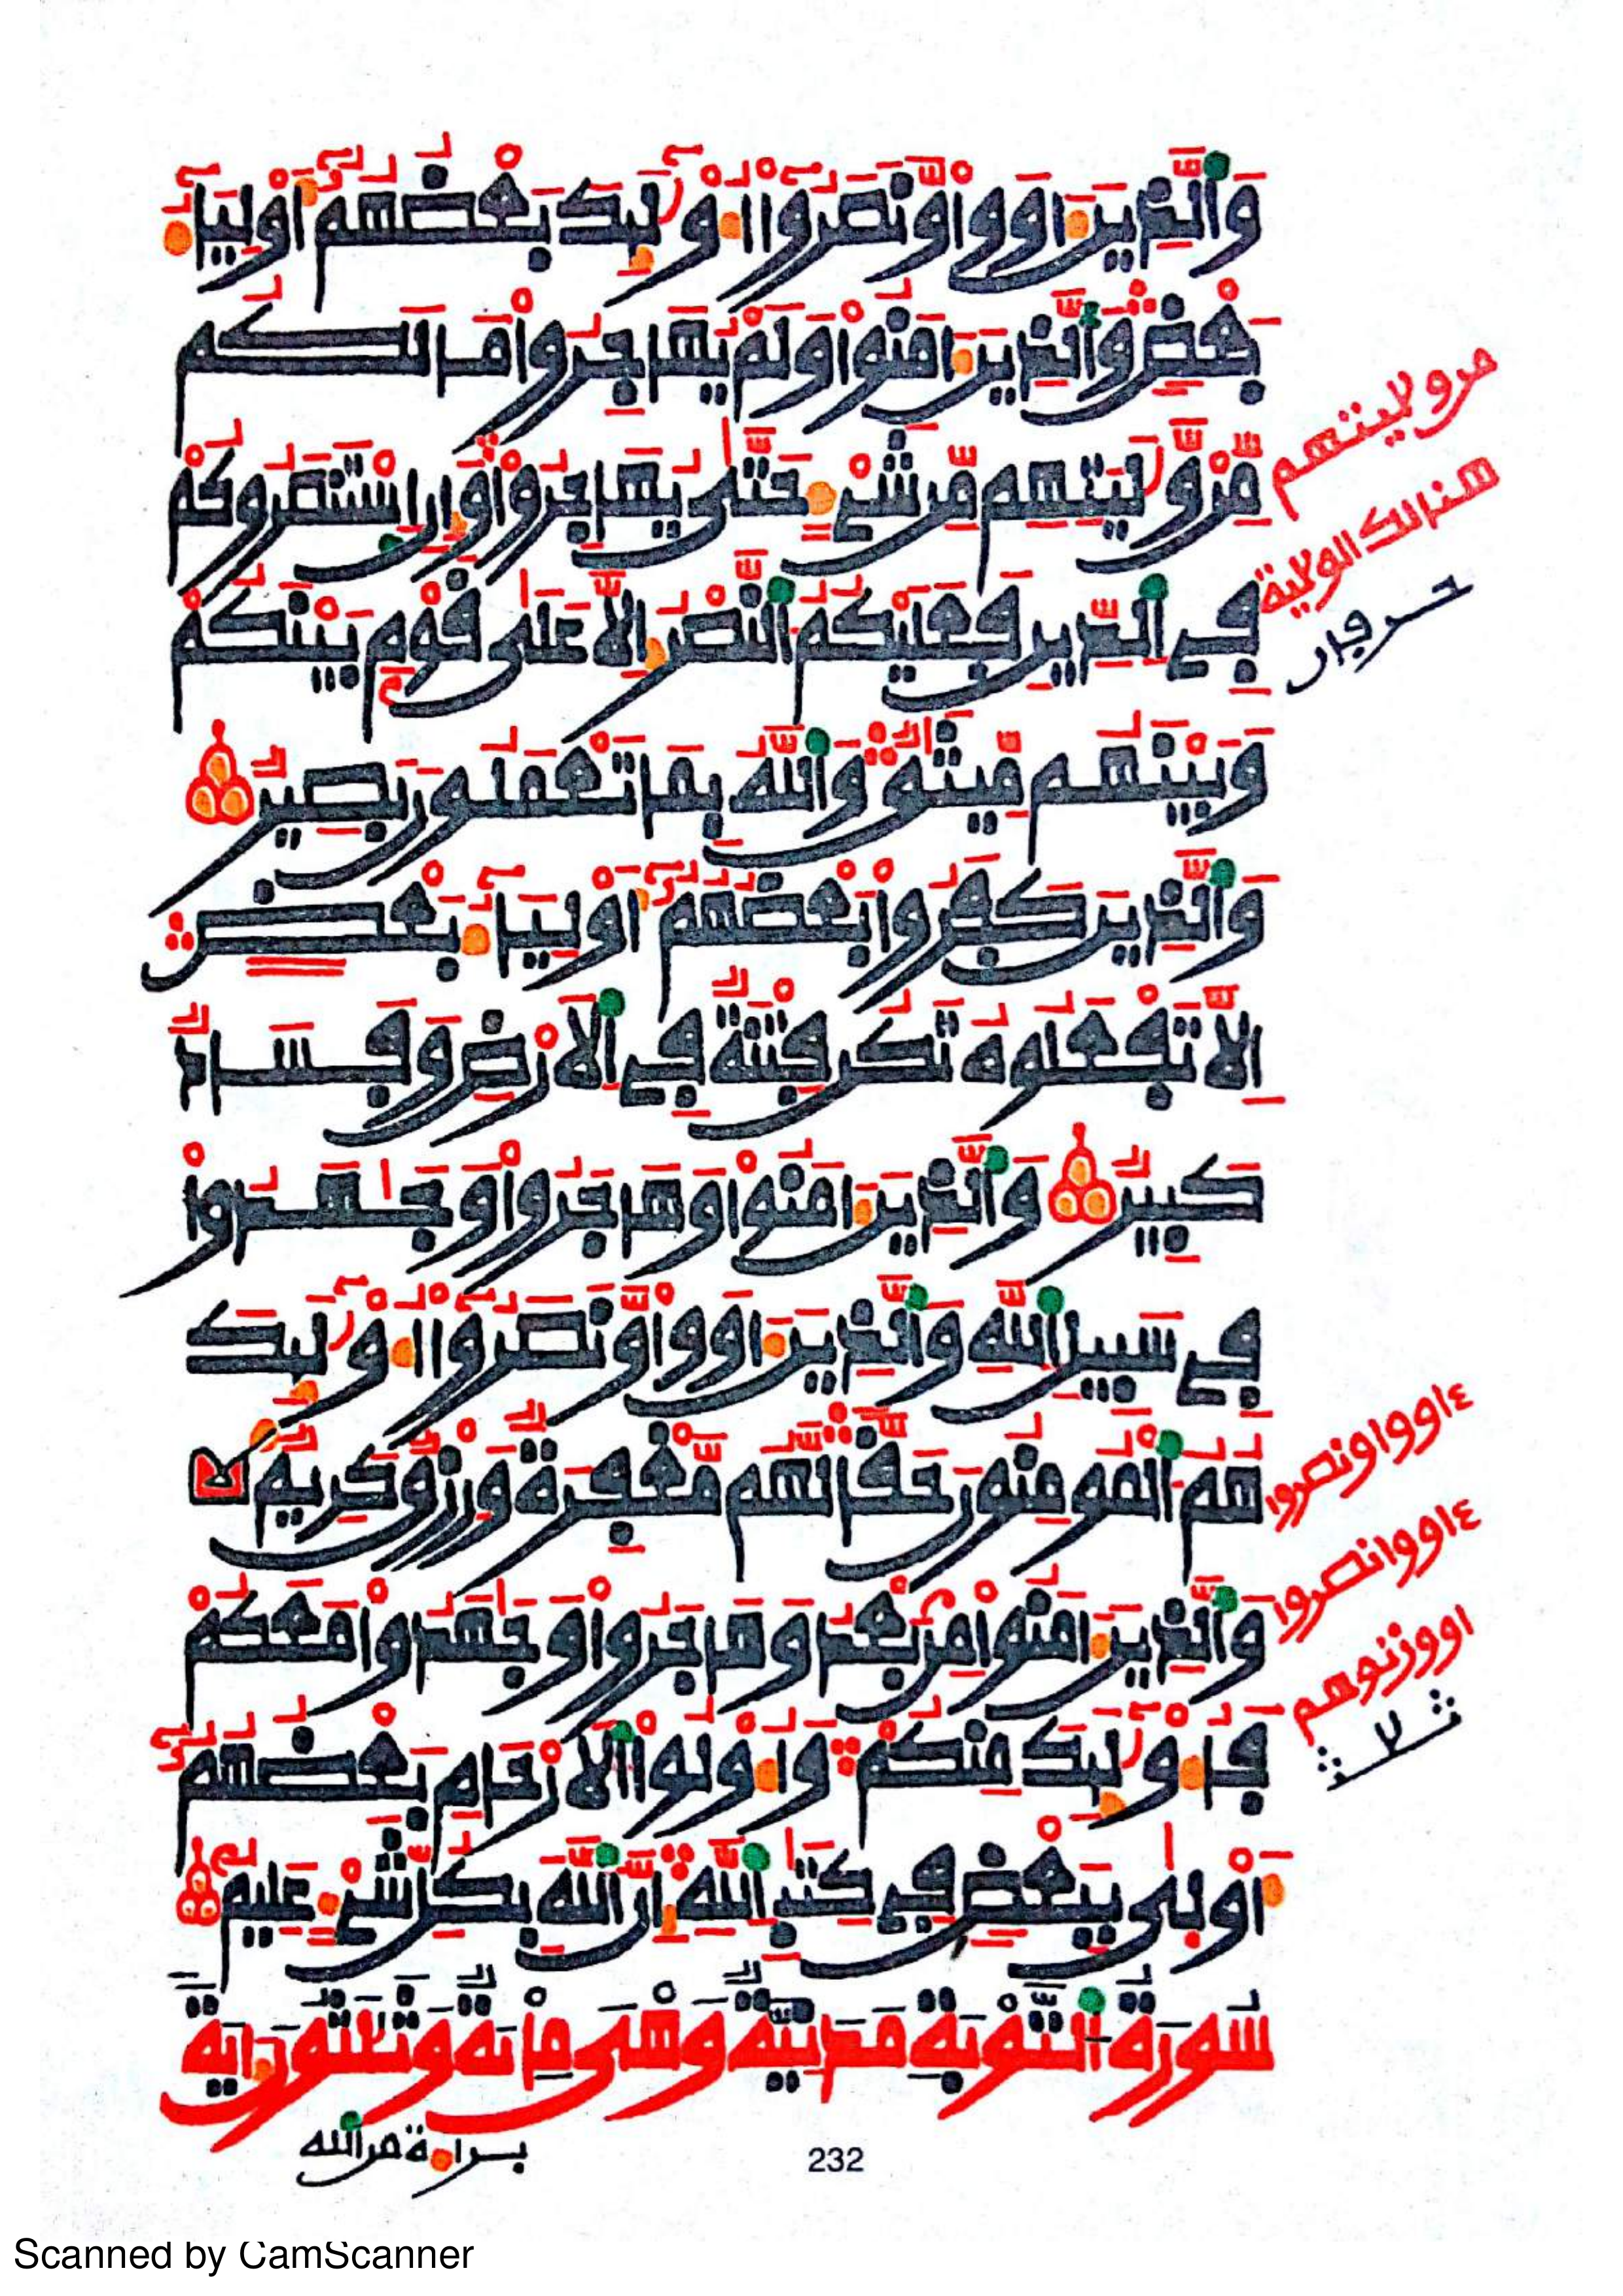 وَالَّذِينَ ءَاوَوا وَّنَصَرُوا أُوْلَٰٓئِكَ بَعْضُهُمُۥٓ أَوْلِيَآءُ
بَعْضٍ وَالَّذِينَ ءَامَنُوا وَلَمْ يُهَاجِرُوا مَا لَكُم
مِّنْ وَّلَٰيَتِهِم مِّن شَيْءٍ حَتَّىٰ يُهَاجِرُوا وَإِنِ اسْتَنصَرُوكُمْ
فِي الدِّينِ فَعَلَيْكُمُ النَّصْرُ إِلَّا عَلَىٰ قَوْمٍ بَيْنَكُمْ
وَبَيْنَهُم مِّيثَٰقٌ وَاللَّهُ بِمَا تَعْمَلُونَ بَصِيرٌ
وَالَّذِينَ كَفَرُوا بَعْضُهُمُۥٓ أَوْلِيَآءُ بَعْضٍ
إِلَّا تَفْعَلُوهُ تَكُن فِتْنَةٌ فِي الْأَرْضِ وَفَسَادٌ
كَبِيرٌ وَالَّذِينَ ءَامَنُوا وَهَاجَرُوا وَجَٰهَدُوا
فِي سَبِيلِ اللَّهِ وَالَّذِينَ ءَاوَوا وَّنَصَرُوا أُوْلَٰٓئِكَ
هُمُ الْمُومِنُونَ حَقًّا لَّهُم مَّغْفِرَةٌ وَرِزْقٌ كَرِيمٌ
وَالَّذِينَ ءَامَنُوا مِنْ بَعْدُ وَهَاجَرُوا وَجَٰهَدُوا مَعَكُمْ
فَأُوْلَٰٓئِكَ مِنكُمْ وَأُوْلُوا الْأَرْحَامِ بَعْضُهُمُۥٓ
أَوْلَىٰ بِبَعْضٍ فِي كِتَٰبِ اللَّهِ إِنَّ اللَّهَ بِكُلِّ شَيْءٍ عَلِيمٌ
سُورَةُ التَّوْبَةِ مَدَنِيَّةٌ وَهْىَ مِائَةٌ وَثَلَٰثُونَ ءَايَةً
براءة من الله
من ولايتهم
هنالك الولاية
حرفان
ءاووا ونصروا
ءاووا نصروا
اووزنوهم
ثلاث
232
Scanned by CamScanner